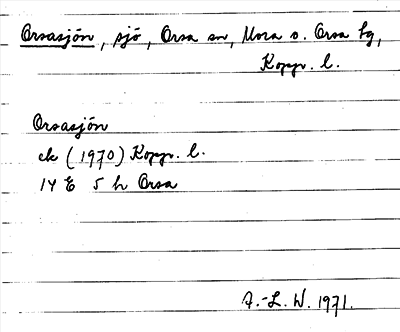 Orsasjön, sjö, Orsa sn, Mora o. Orsa tg,
Kopp. l.
Orsasjön
ek (1970) Kopp. l.
14 E 5 h Orsa
A.-L. W. 1971.